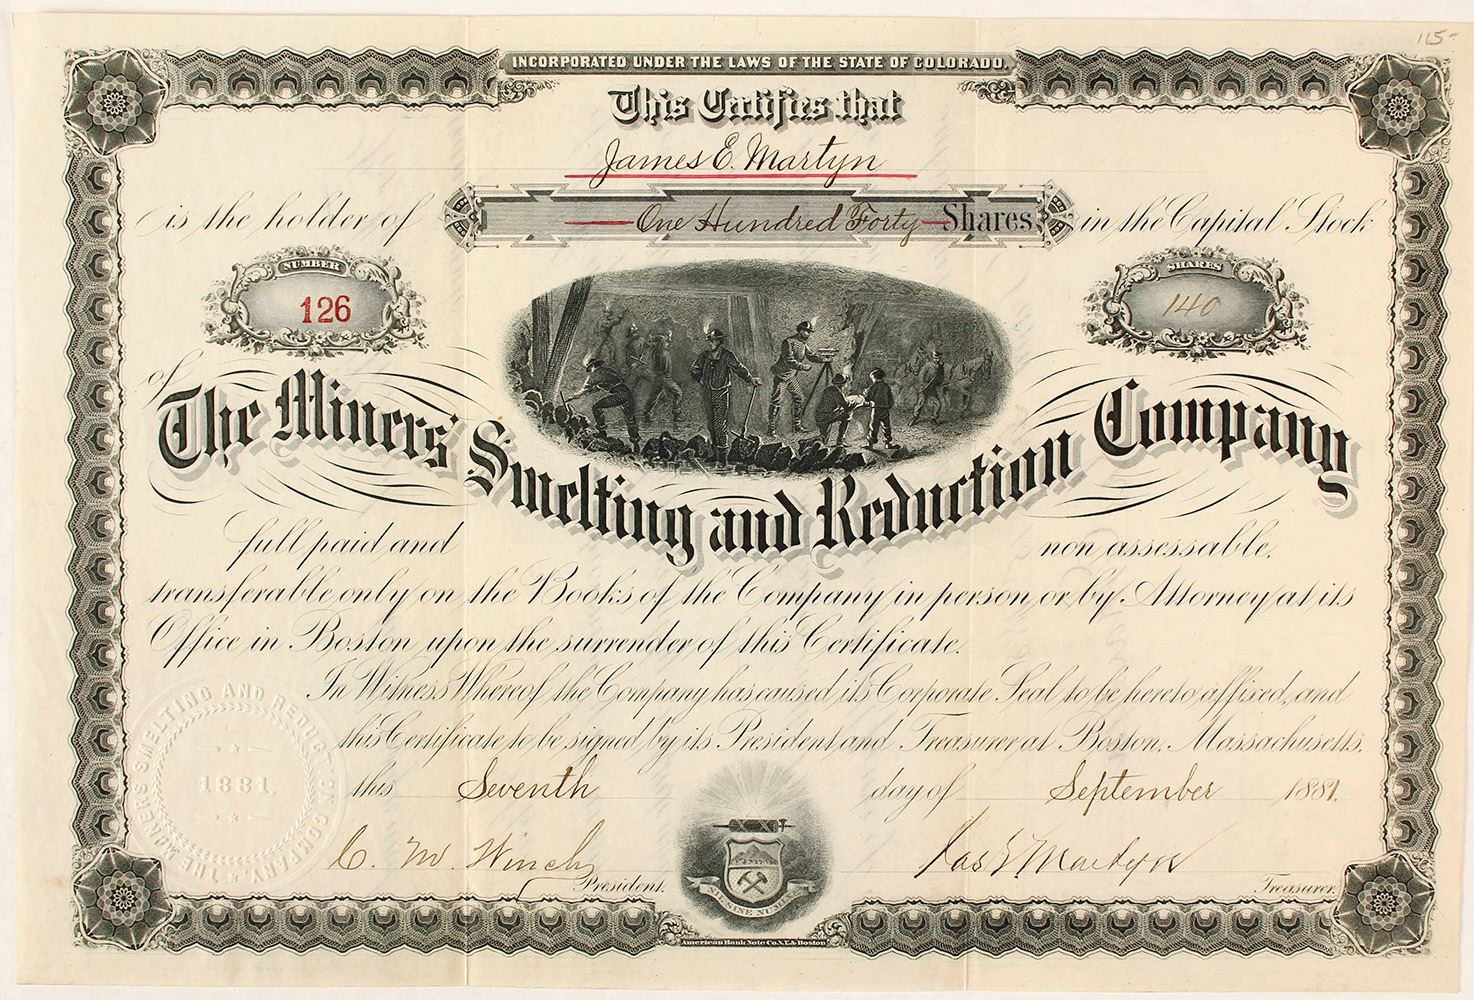 115-
INCORPORATED UNDER THE LAWS OF THE STATE OF COLORADO.
This Certifies that
James E. Martyn
is the holder of One Hundred Forty Shares in the Capital Stock
NUMBER
126
SHARES
140
of
The Miners' Smelting and Reduction Company
full paid and non assessable,
transferable only on the Books of the Company in person or by Attorney at its
Office in Boston upon the surrender of this Certificate.
In Witness Whereof the Company has caused its Corporate Seal to be hereto affixed, and
this Certificate to be signed by its President and Treasurer at Boston, Massachusetts,
this Seventh day of September 1881.
THE MINERS SMELTING AND REDUCTION COMPANY.
1881.
C. M. Winch President.
Jas E Martyn Treasurer.
NIL SINE NUMINE
American Bank Note Co. N.Y. & Boston